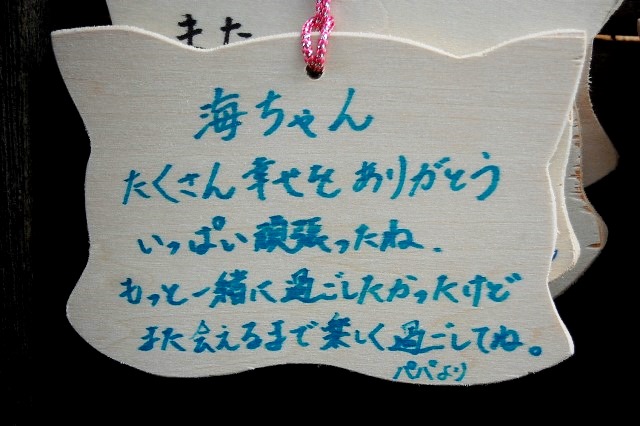 また
海ちゃん
たくさん幸せをありがとう
いっぱい頑張ったね.
もっと一緒に過ごしたかったけど
また会えるまで楽しく過ごしてね。
パパより